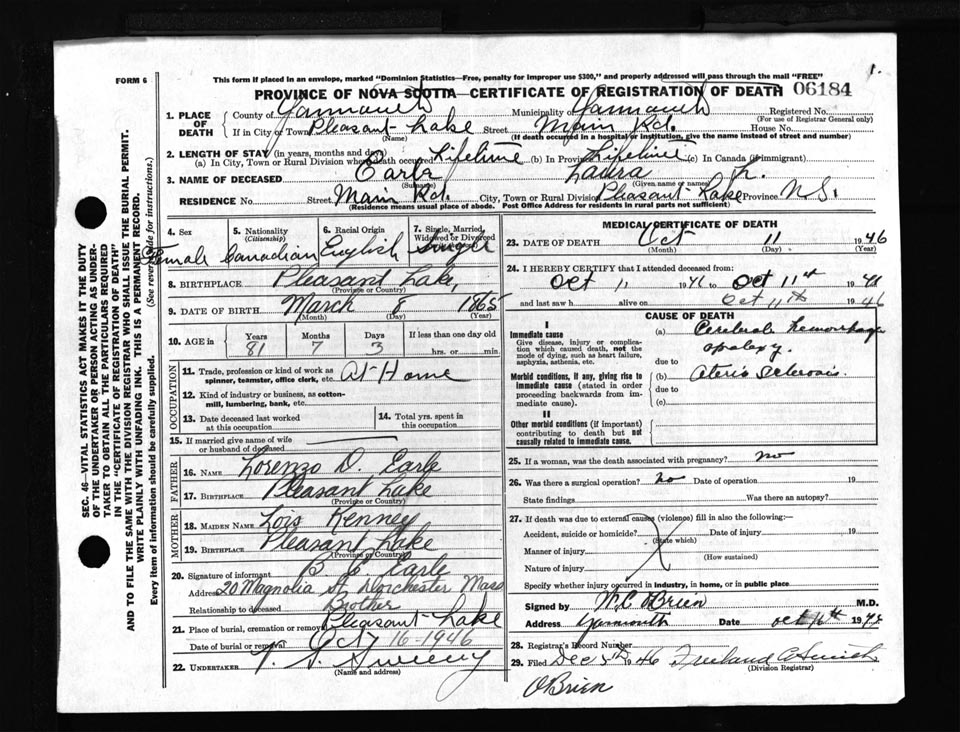 1.
FORM 6
This form if placed in an envelope, marked "Dominion Statistics—Free, penalty for improper use $300," and properly addressed will pass through the mail "FREE"
PROVINCE OF NOVA SCOTIA—CERTIFICATE OF REGISTRATION OF DEATH 06184
SEC. 46—VITAL STATISTICS ACT MAKES IT THE DUTY
OF THE UNDERTAKER OR PERSON ACTING AS UNDER-
TAKER TO OBTAIN ALL THE PARTICULARS REQUIRED
IN THE "CERTIFICATE OF REGISTRATION OF DEATH"
AND TO FILE THE SAME WITH THE DIVISION REGISTRAR WHO SHALL ISSUE THE BURIAL PERMIT.
WRITE PLAINLY WITH UNFADING INK. THIS IS A PERMANENT RECORD.
Every item of information should be carefully supplied. (See reverse side for instructions.)
1. PLACE OF DEATH County of Yarmouth Municipality of Yarmouth Registered No.
(For use of Registrar General only)
If in City or Town Pleasant Lake Street Main Rd. House No.
(Name) (If death occurred in a hospital or institution, give the name instead of street and number)
2. LENGTH OF STAY (in years, months and days)
(a) In City, Town or Rural Division where death occurred Lifetime (b) In Province Lifetime (c) In Canada (if immigrant)
3. NAME OF DECEASED Earle Laura
(Surname) (Given name or names)
RESIDENCE No. Street Main Rd. City, Town or Rural Division Pleasant Lake Province N.S.
(Residence means usual place of abode. Post Office Address for residents in rural parts not sufficient)
4. Sex 5. Nationality (Citizenship) 6. Racial Origin 7. Single, Married, Widowed or Divorced
Female Canadian English Single
8. BIRTHPLACE Pleasant Lake,
(Province or Country)
9. DATE OF BIRTH March 8 1865
(Month) (Day) (Year)
10. AGE in Years Months Days If less than one day old
81 7 3 hrs. or min.
OCCUPATION
11. Trade, profession or kind of work as spinner, teamster, office clerk, etc. At Home
12. Kind of industry or business, as cotton-mill, lumbering, bank, etc.
13. Date deceased last worked at this occupation 14. Total yrs. spent in this occupation
15. If married give name of wife or husband of deceased
FATHER
16. NAME Lorenzo D. Earle
17. BIRTHPLACE Pleasant Lake
(Province or Country)
MOTHER
18. MAIDEN NAME Lois Kenney
19. BIRTHPLACE Pleasant Lake
(Province or Country)
20. Signature of informant B E Earle
Address 20 Magnolia St Dorchester Mass
Relationship to deceased Brother
21. Place of burial, cremation or removal Pleasant Lake
Date of burial or removal Oct 16-1946
22. UNDERTAKER Sweeny
(Name and address)
MEDICAL CERTIFICATE OF DEATH
23. DATE OF DEATH Oct 11 1946
(Month) (Day) (Year)
24. I HEREBY CERTIFY that I attended deceased from:
Oct 11 1946 to Oct 11th 1946
and last saw h alive on Oct 11th 1946
CAUSE OF DEATH
I
Immediate cause
Give disease, injury or complication which caused death, not the mode of dying, such as heart failure, asphyxia, asthenia, etc.
(a) Cerebral hemorrhage
apolexy.
due to
Morbid conditions, if any, giving rise to immediate cause (stated in order proceeding backwards from immediate cause).
(b) Aterio Sclerosis.
due to
(c)
II
Other morbid conditions (if important) contributing to death but not causally related to immediate cause.
25. If a woman, was the death associated with pregnancy? no
26. Was there a surgical operation? no Date of operation 19
State findings Was there an autopsy?
27. If death was due to external causes (violence) fill in also the following:—
Accident, suicide or homicide? Date of injury 19
(State which)
Manner of injury
(How sustained)
Nature of injury
Specify whether injury occurred in industry, in home, or in public place
Signed by W.C. O'Brien M.D.
Address Yarmouth Date oct 16th 1946
28. Registrar's Record Number
29. Filed Dec 5th 1946
(Division Registrar)
O'Brien